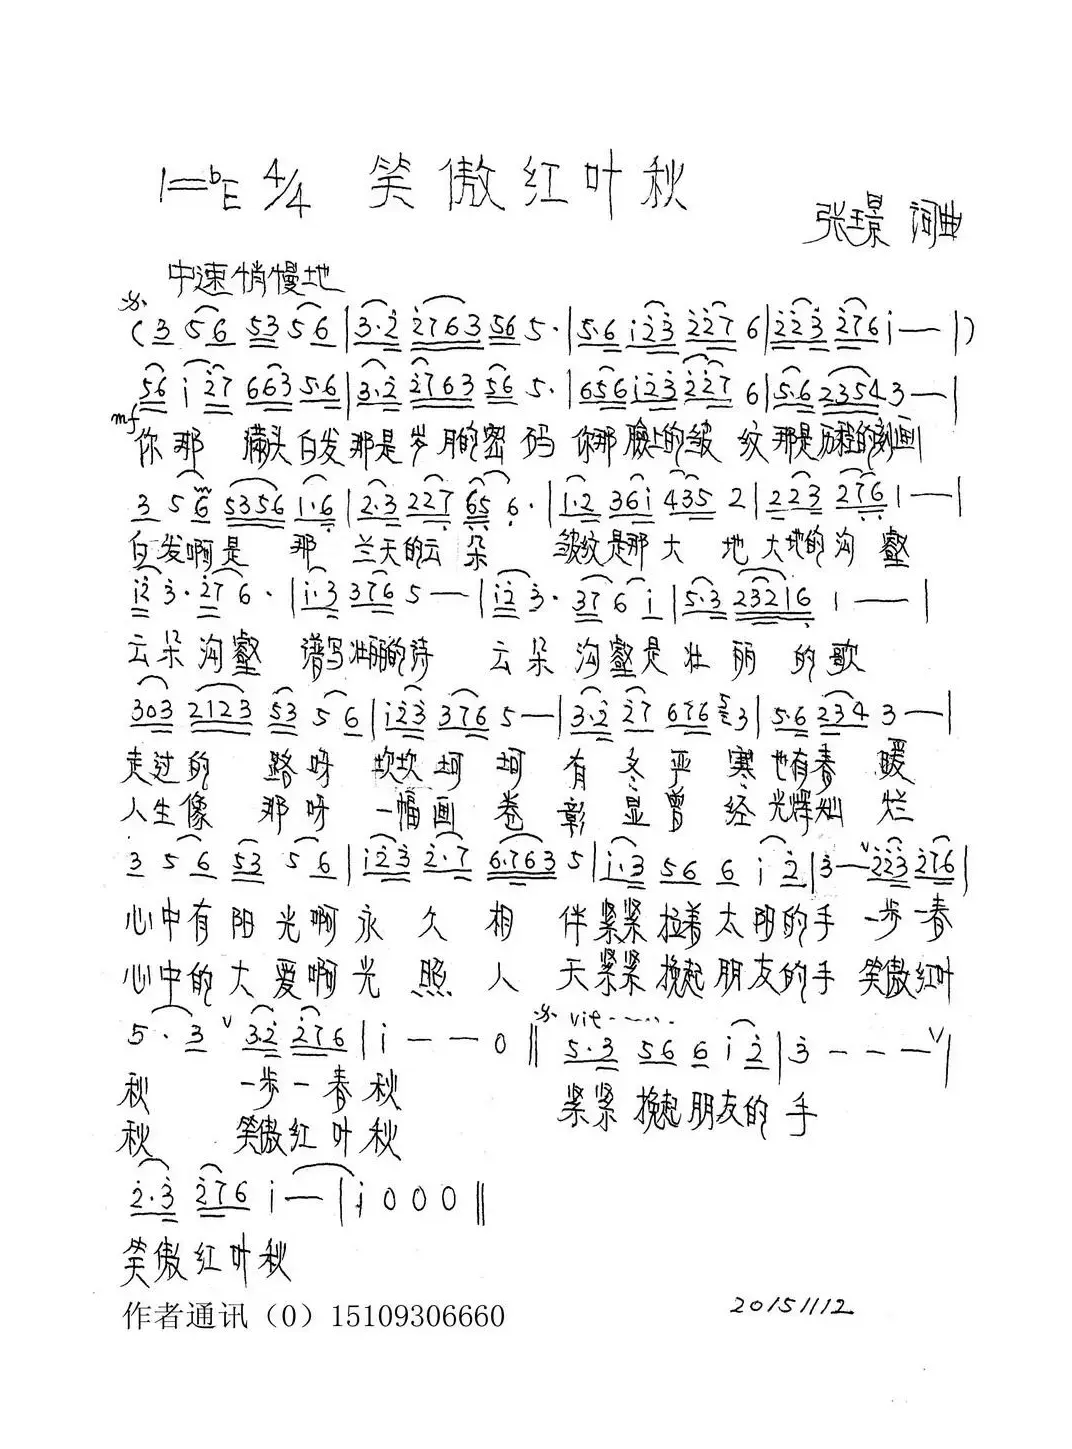 1=♭E 4/4 笑傲红叶秋
张璟 词曲
中速悄慢地
(3 56 53 56 | 3·2 2763 56 5· | 5·6 i23 227 6 | 223 276 i — — | )
56 i 27 663 5·6 | 3·2 2763 56 5· | 656 i23 227 6 | 5·6 2354 3 — — |
mf 你那 满头白发那是岁月的密码 你那脸上的皱纹那是历程的刻画
3 5 6 5356 1·6 | 2·3 227 65 6· | 1·2 36i 435 2 | 223 276 1 — — |
白发啊是 那 兰天的云朵 皱纹是那大 地大地的沟壑
i2 3· 27 6· | i·3 376 5 — — | i2 3· 37 6 i | 5·3 23216 1 — — |
云朵沟壑 谱写壮丽的诗 云朵沟壑是壮丽的歌
303 2123 53 5 6 | i23 376 5 — — | 3·2 27 676 5 3 | 5·6 234 3 — — |
走过的 路呀 坎坎坷坷 有冬严寒也有春暖
人生像 那呀 一幅画卷 彰显曾经光辉灿烂
3 5 6 53 5 6 | i23 2·7 6·763 5 | i·3 56 6 i 2 | 3 — ∨223 276 |
心中有阳光啊永久相 伴紧紧拉着太阳的手 一步一春
心中的大爱啊光照人 天紧紧挽起朋友的手 笑傲红叶
5 · 3 ∨ 3·2 276 | i — — 0 ‖ 5·3 56 6 i 2 | 3 — — — ∨|
vit······
秋 一步一春秋
紧紧挽起朋友的手
秋 笑傲红叶秋
2·3 276 i — | i 0 0 0 ‖
笑傲红叶秋
作者通讯（0）15109306660
20151112